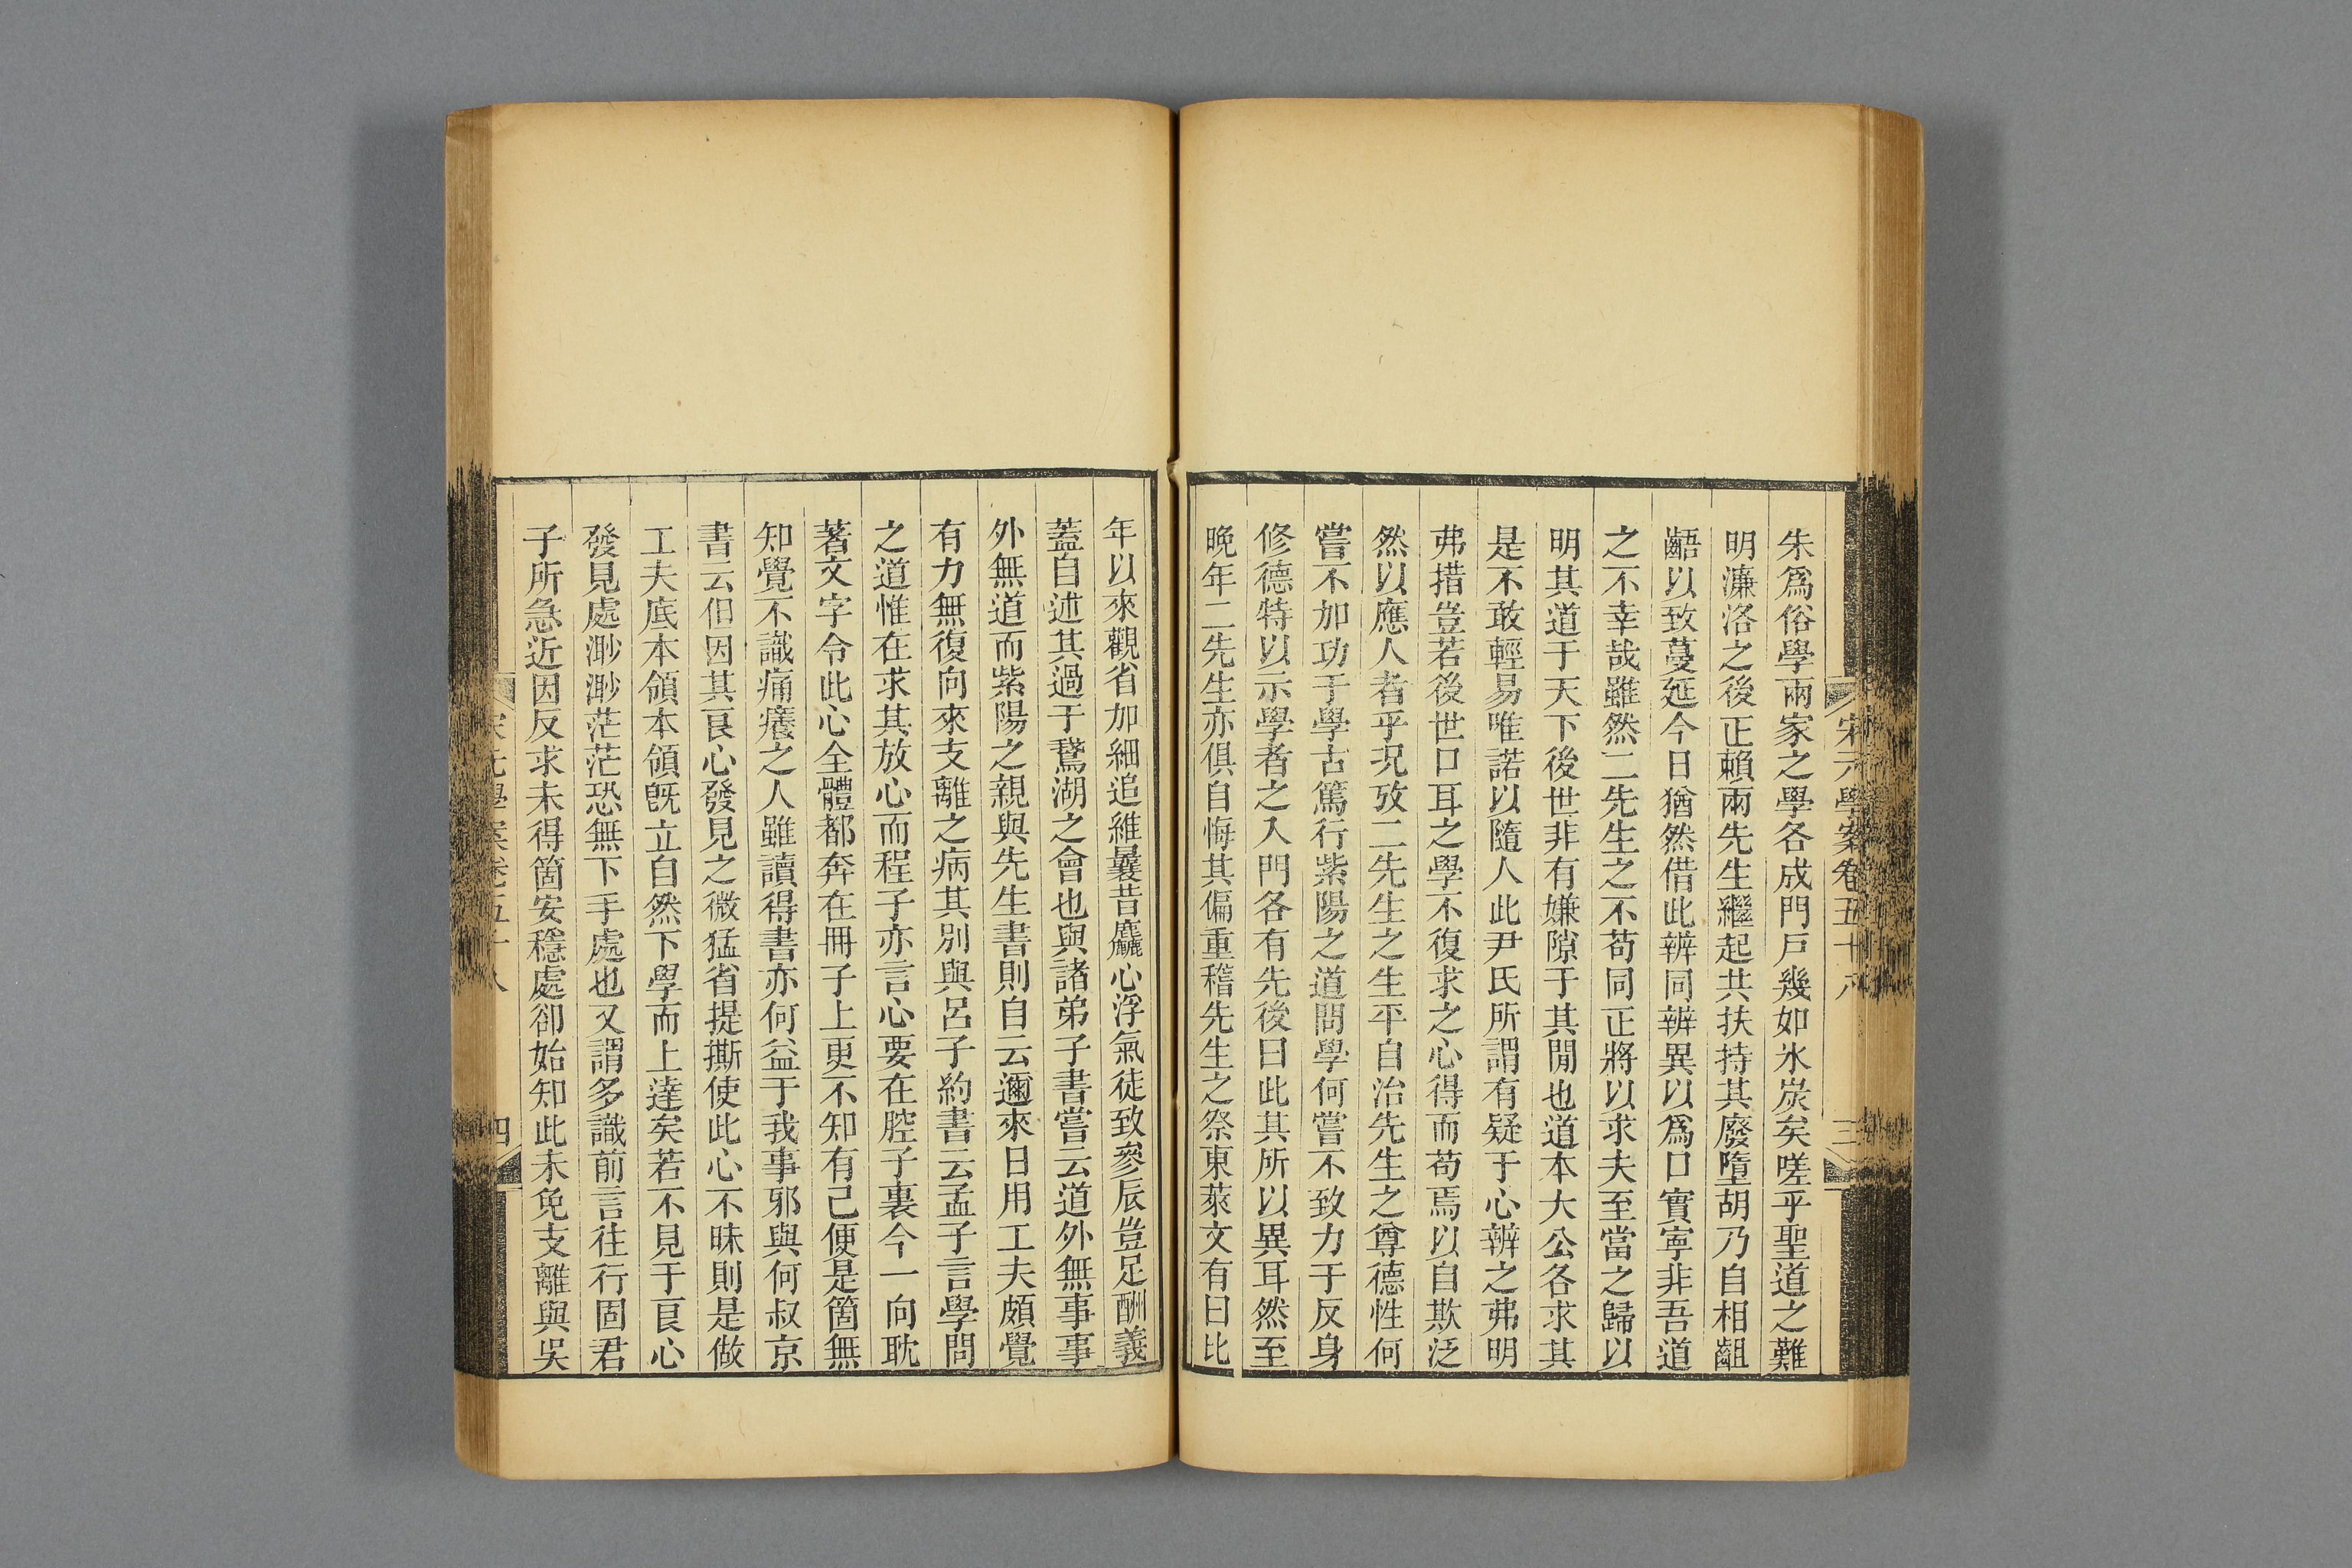 宋元學案卷五十八
三
朱爲俗學兩家之學各成門戶幾如冰炭矣嗟乎聖道之難
明濂洛之後正賴兩先生繼起共扶持其廢墮胡乃自相齟
齬以致蔓延今日猶然借此辨同辨異以爲口實寧非吾道
之不幸哉雖然二先生之不苟同正將以求夫至當之歸以
明其道于天下後世非有嫌隙于其閒也道本大公各求其
是不敢輕易唯諾以隨人此尹氏所謂有疑于心辨之弗明
弗措豈若後世口耳之學不復求之心得而苟焉以自欺泛
然以應人者乎況攷二先生之生平自治先生之尊德性何
嘗不加功于學古篤行紫陽之道問學何嘗不致力于反身
修德特以示學者之入門各有先後曰此其所以異耳然至
晚年二先生亦俱自悔其偏重稽先生之祭東萊文有曰比
年以來觀省加細追維曩昔麤心浮氣徒致參辰豈足酬義
蓋自述其過于鵞湖之會也與諸弟子書嘗云道外無事事
外無道而紫陽之親與先生書則自云邇來日用工夫頗覺
有力無復向來支離之病其別與呂子約書云孟子言學問
之道惟在求其放心而程子亦言心要在腔子裏今一向耽
著文字令此心全體都奔在冊子上更不知有己便是箇無
知覺不識痛癢之人雖讀得書亦何益于我事邪與何叔京
書云但因其良心發見之微猛省提撕使此心不昧則是做
工夫底本領本領旣立自然下學而上達矣若不見于良心
發見處渺渺茫茫恐無下手處也又謂多識前言往行固君
子所急近因反求未得箇安穩處卻始知此未免支離與吳
宋元學案卷五十八
四